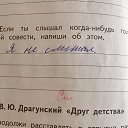 Если ты слышал когда-нибудь го
й совести, напиши об этом.
Я не слышал
См
В. Ю. Драгунский «Друг детства»
родолжи расставлять в